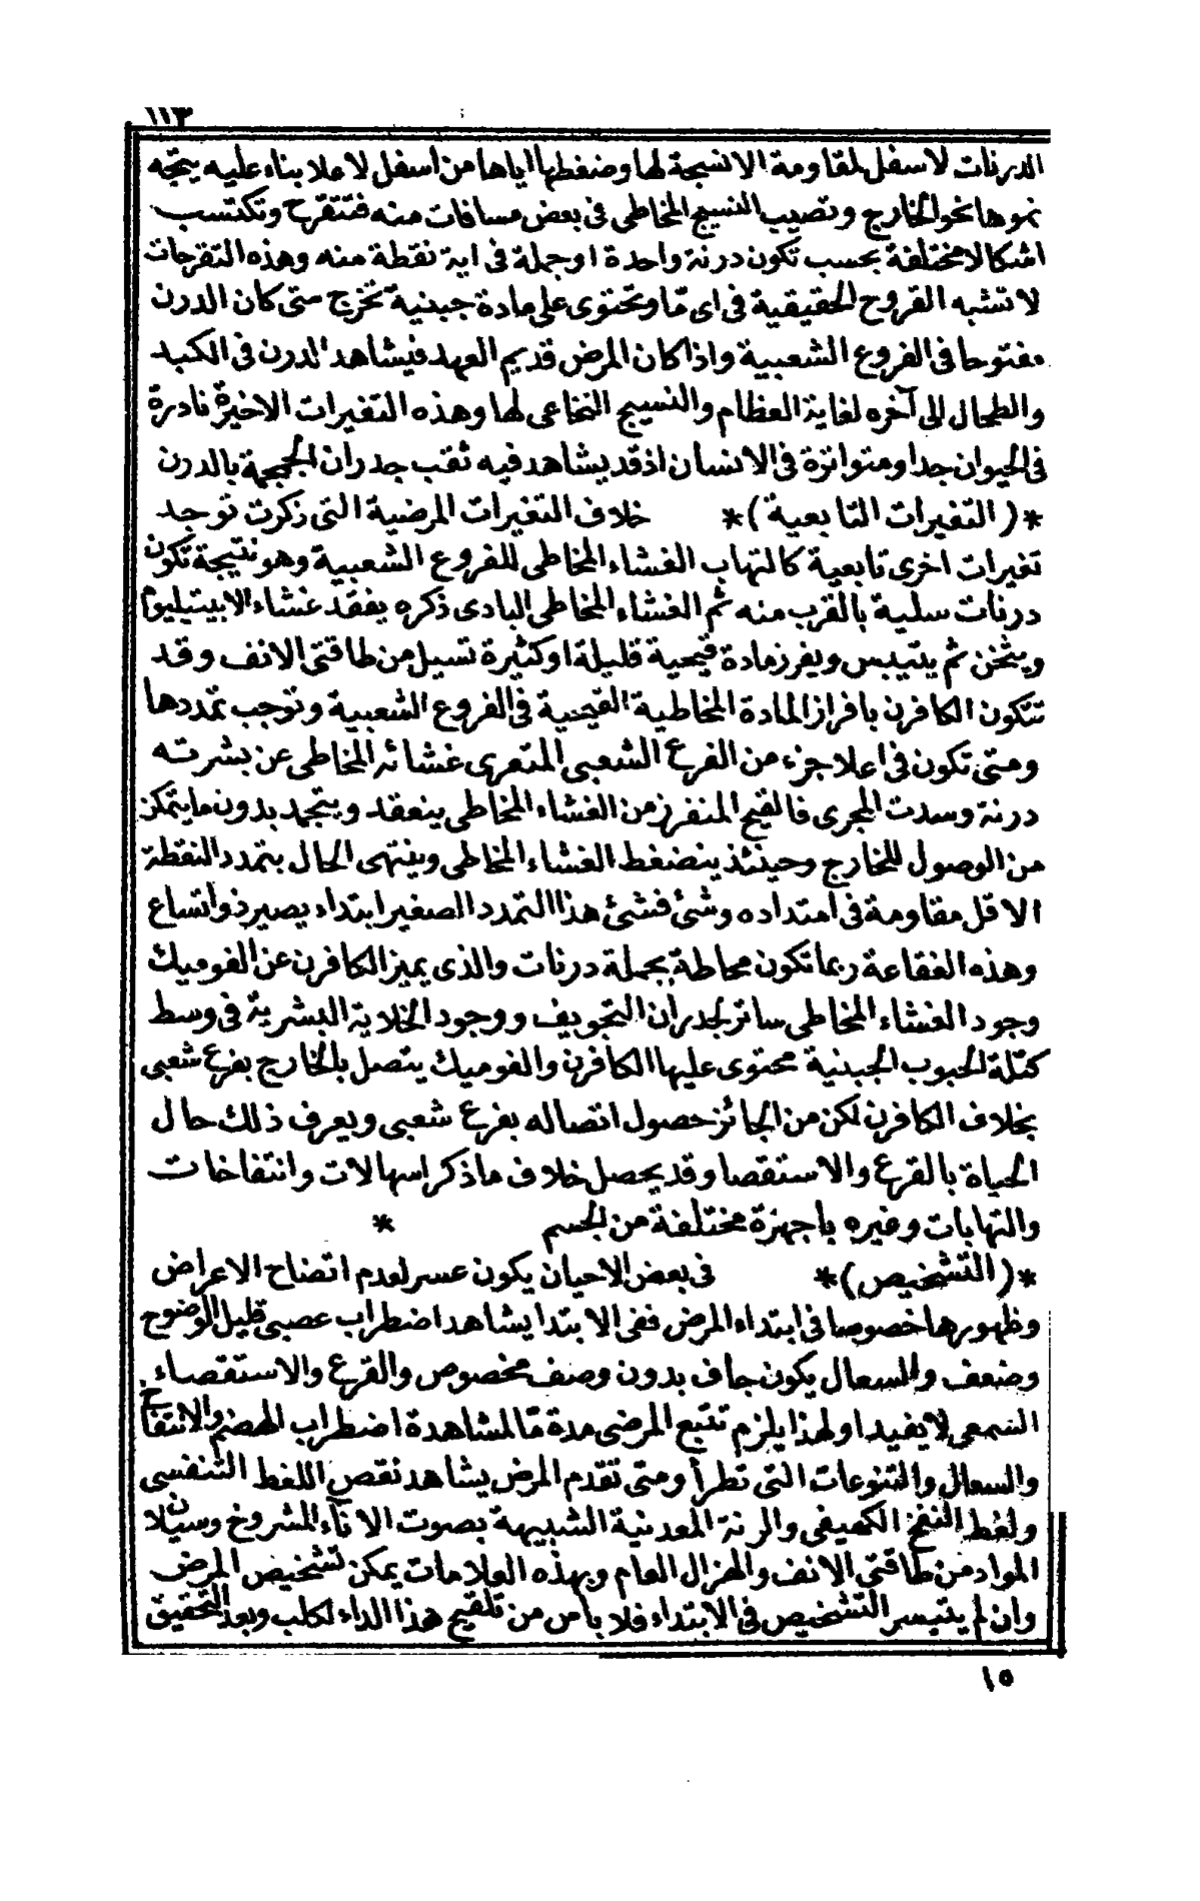 ١١٣
الدرنات لاسفل لمقاومة الانسجة لها وضغطها اياها من اسفل لاعلا بناء عليه يتجه
نموها نحو الخارج وتصيب النسيج المخاطى فى بعض مسافات منه فتتقرح وتكتسب
اشكالا مختلفة بحسب تكون درنة واحدة او جملة فى اية نقطة منه وهذه التقرحات
لا تشبه القروح الحقيقية فى اى مّا وتحتوى على مادة جبنية تخرج متى كان الدرن
مفتوحا فى الفروع الشعبية واذا كان المرض قديم العهد فيشاهد الدرن فى الكبد
والطحال الى آخره لغاية العظام والنسيج النخاعى لها وهذه التغيرات الاخيرة نادرة
فى الحيوان جدا ومتواترة فى الانسان اذ قد يشاهد فيه ثقب جدران الجمجمة بالدرن
*(التغيرات التابعية)* خلاف التغيرات المرضية التى ذكرت توجد
تغيرات اخرى تابعية كالتهاب الغشاء المخاطى للفروع الشعبية وهو نتيجة تكون
درنات سلية بالقرب منه ثم الغشاء المخاطى البادى ذكره يفقد غشاء الابيتيليوم
ويثخن ثم يتيبس ويفرز مادة قيحية قليلة او كثيرة تسيل من طاقتى الانف وقد
تتكون الكافرن بافراز المادة المخاطية القيحية فى الفروع الشعبية وتوجب تمددها
ومتى تكون فى اعلا جزء من الفرع الشعبى المتعرى غشائه المخاطى عن بشرته
درنة وسدت المجرى فالقيح المنفرز من الغشاء المخاطى ينعقد ويتجمد بدون ما يتمكن
من الوصول للخارج وحينئذ ينضغط الغشاء المخاطى وينتهى الحال بتمدد النقطة
الاقل مقاومة فى امتداده وشئ فشئ هذا التمدد الصغير ابتداء يصير ذو اتساع
وهذه الفقاعة ربما تكون محاطة بجملة درنات والذى يميز الكافرن عن الفوميك
وجود الغشاء المخاطى ساتر لجدران التجويف ووجود الخلاية البشرية فى وسط
كتلة الحبوب الجبنية محتوى عليها الكافرن والفوميك يتصل بالخارج بفرع شعبى
بخلاف الكافرن لكن من الجائز حصول اتصاله بفرع شعبى ويعرف ذلك حال
الحياة بالقرع والاستقصا وقد يحصل خلاف ما ذكر اسهالات وانتفاخات
والتهابات وغيره باجهزة مختلفة من الجسم *
*(التشخيص)* فى بعض الاحيان يكون عسر لعدم اتضاح الاعراض
وظهورها خصوصا فى ابتداء المرض ففى الابتدا يشاهد اضطراب عصبى قليل الوضوح
وضعف والسعال يكون جاف بدون وصف مخصوص والقرع والاستقصاء
السمعى لا يفيد او لهذا يلزم تتبع المرضى مدة مّا لمشاهدة اضطراب الهضم والانتفاخ
والسعال والتنوعات التى تطرأ ومتى تقدم المرض يشاهد نقص اللغط التنفسى
ولغط النفخ الكهيفى والرنة المعدنية الشبيهة بصوت الاناء المشروخ وسيلان
المواد من طاقتى الانف والهزال العام وبهذه العلامات يمكن تشخيص المرض
وان لم يتيسر التشخيص فى الابتداء فلا بأس من تلقيح هذا الداء لكلب وبعد التحقيق
١٥